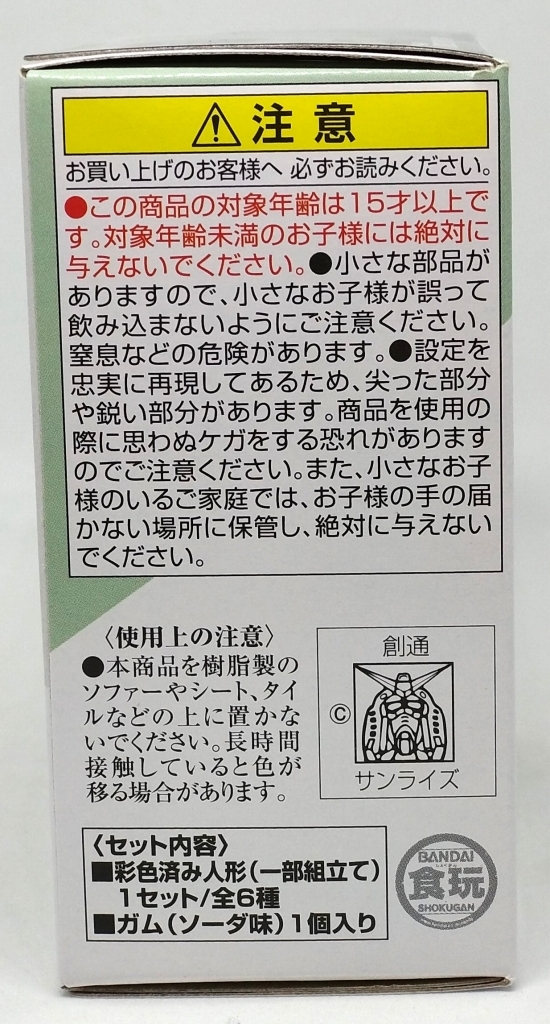 注意
お買い上げのお客様へ 必ずお読みください。
●この商品の対象年齢は15才以上で
す。対象年齢未満のお子様には絶対に
与えないでください。●小さな部品が
ありますので、小さなお子様が誤って
飲み込まないようにご注意ください。
窒息などの危険があります。●設定を
忠実に再現してあるため、尖った部分
や鋭い部分があります。商品を使用の
際に思わぬケガをする恐れがあります
のでご注意ください。また、小さなお子
様のいるご家庭では、お子様の手の届
かない場所に保管し、絶対に与えない
でください。
〈使用上の注意〉
●本商品を樹脂製の
ソファーやシート、タイ
ルなどの上に置かな
いでください。長時間
接触していると色が
移る場合があります。
創通
©
サンライズ
〈セット内容〉
■彩色済み人形(一部組立て)
1セット/全6種
■ガム(ソーダ味)1個入り
BANDAI
食玩
SHOKUGAN